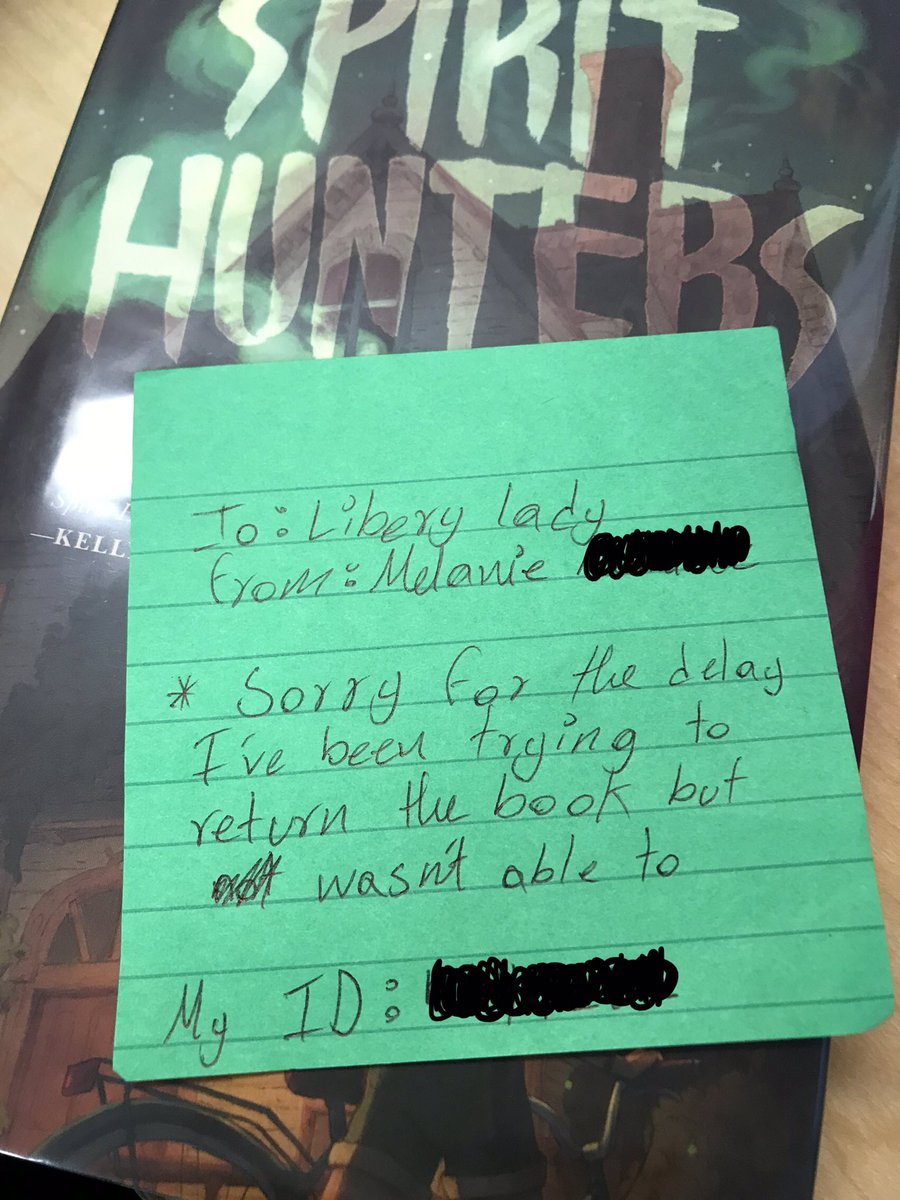 SPIRIT
HUNTERS
—KELL
To: Libery lady
from: Melanie
* Sorry for the delay
I've been trying to
return the book but
wasn't able to
My ID: